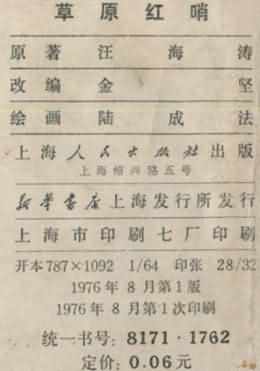 草原红哨
原著 汪海涛
改编 金坚
绘画 陆成法
上海人民出版社出版
上海绍兴路五号
新华书店上海发行所发行
上海市印刷七厂印刷
开本787×1092 1/64 印张 28/32
1976年8月第1版
1976年8月第1次印刷
统一书号：8171·1762
定价：0.06元